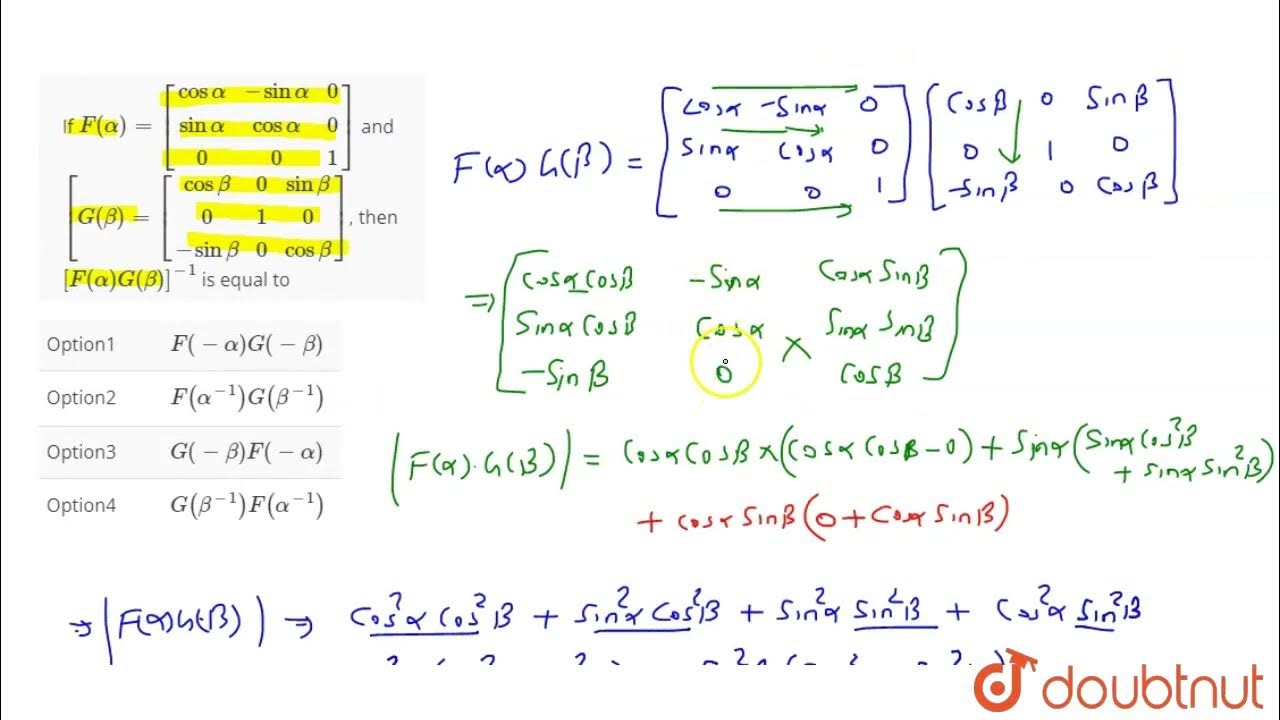 If F(α) = [cos α −sin α 0
sin α cos α 0
0 0 1] and
[G(β) = [cos β 0 sin β
0 1 0
−sin β 0 cos β], then
[F(α)G(β)]⁻¹ is equal to
Option1 F(−α)G(−β)
Option2 F(α⁻¹)G(β⁻¹)
Option3 G(−β)F(−α)
Option4 G(β⁻¹)F(α⁻¹)
F(α) G(β) = [Cosα −Sinα 0] [Cosβ 0 Sinβ]
[Sinα Cosα 0] [0 1 0]
[0 0 1] [−Sinβ 0 Cosβ]
⇒ [Cosα Cosβ −Sinα Cosα Sinβ]
[Sinα Cosβ Cosα Sinα Sinβ]
[−Sinβ 0 × Cosβ]
|F(α).G(β)| = Cosα Cosβ × (Cosα Cosβ − 0) + Sinα (Sinα Cos²β
+ Sinα Sin²β)
+ Cosα Sinβ (0 + Cosα Sinβ)
⇒ |F(α)G(β)| ⇒ Cos²α Cos²β + Sin²α Cos²β + Sin²α Sin²β + Cos²α Sin²β
doubtnut